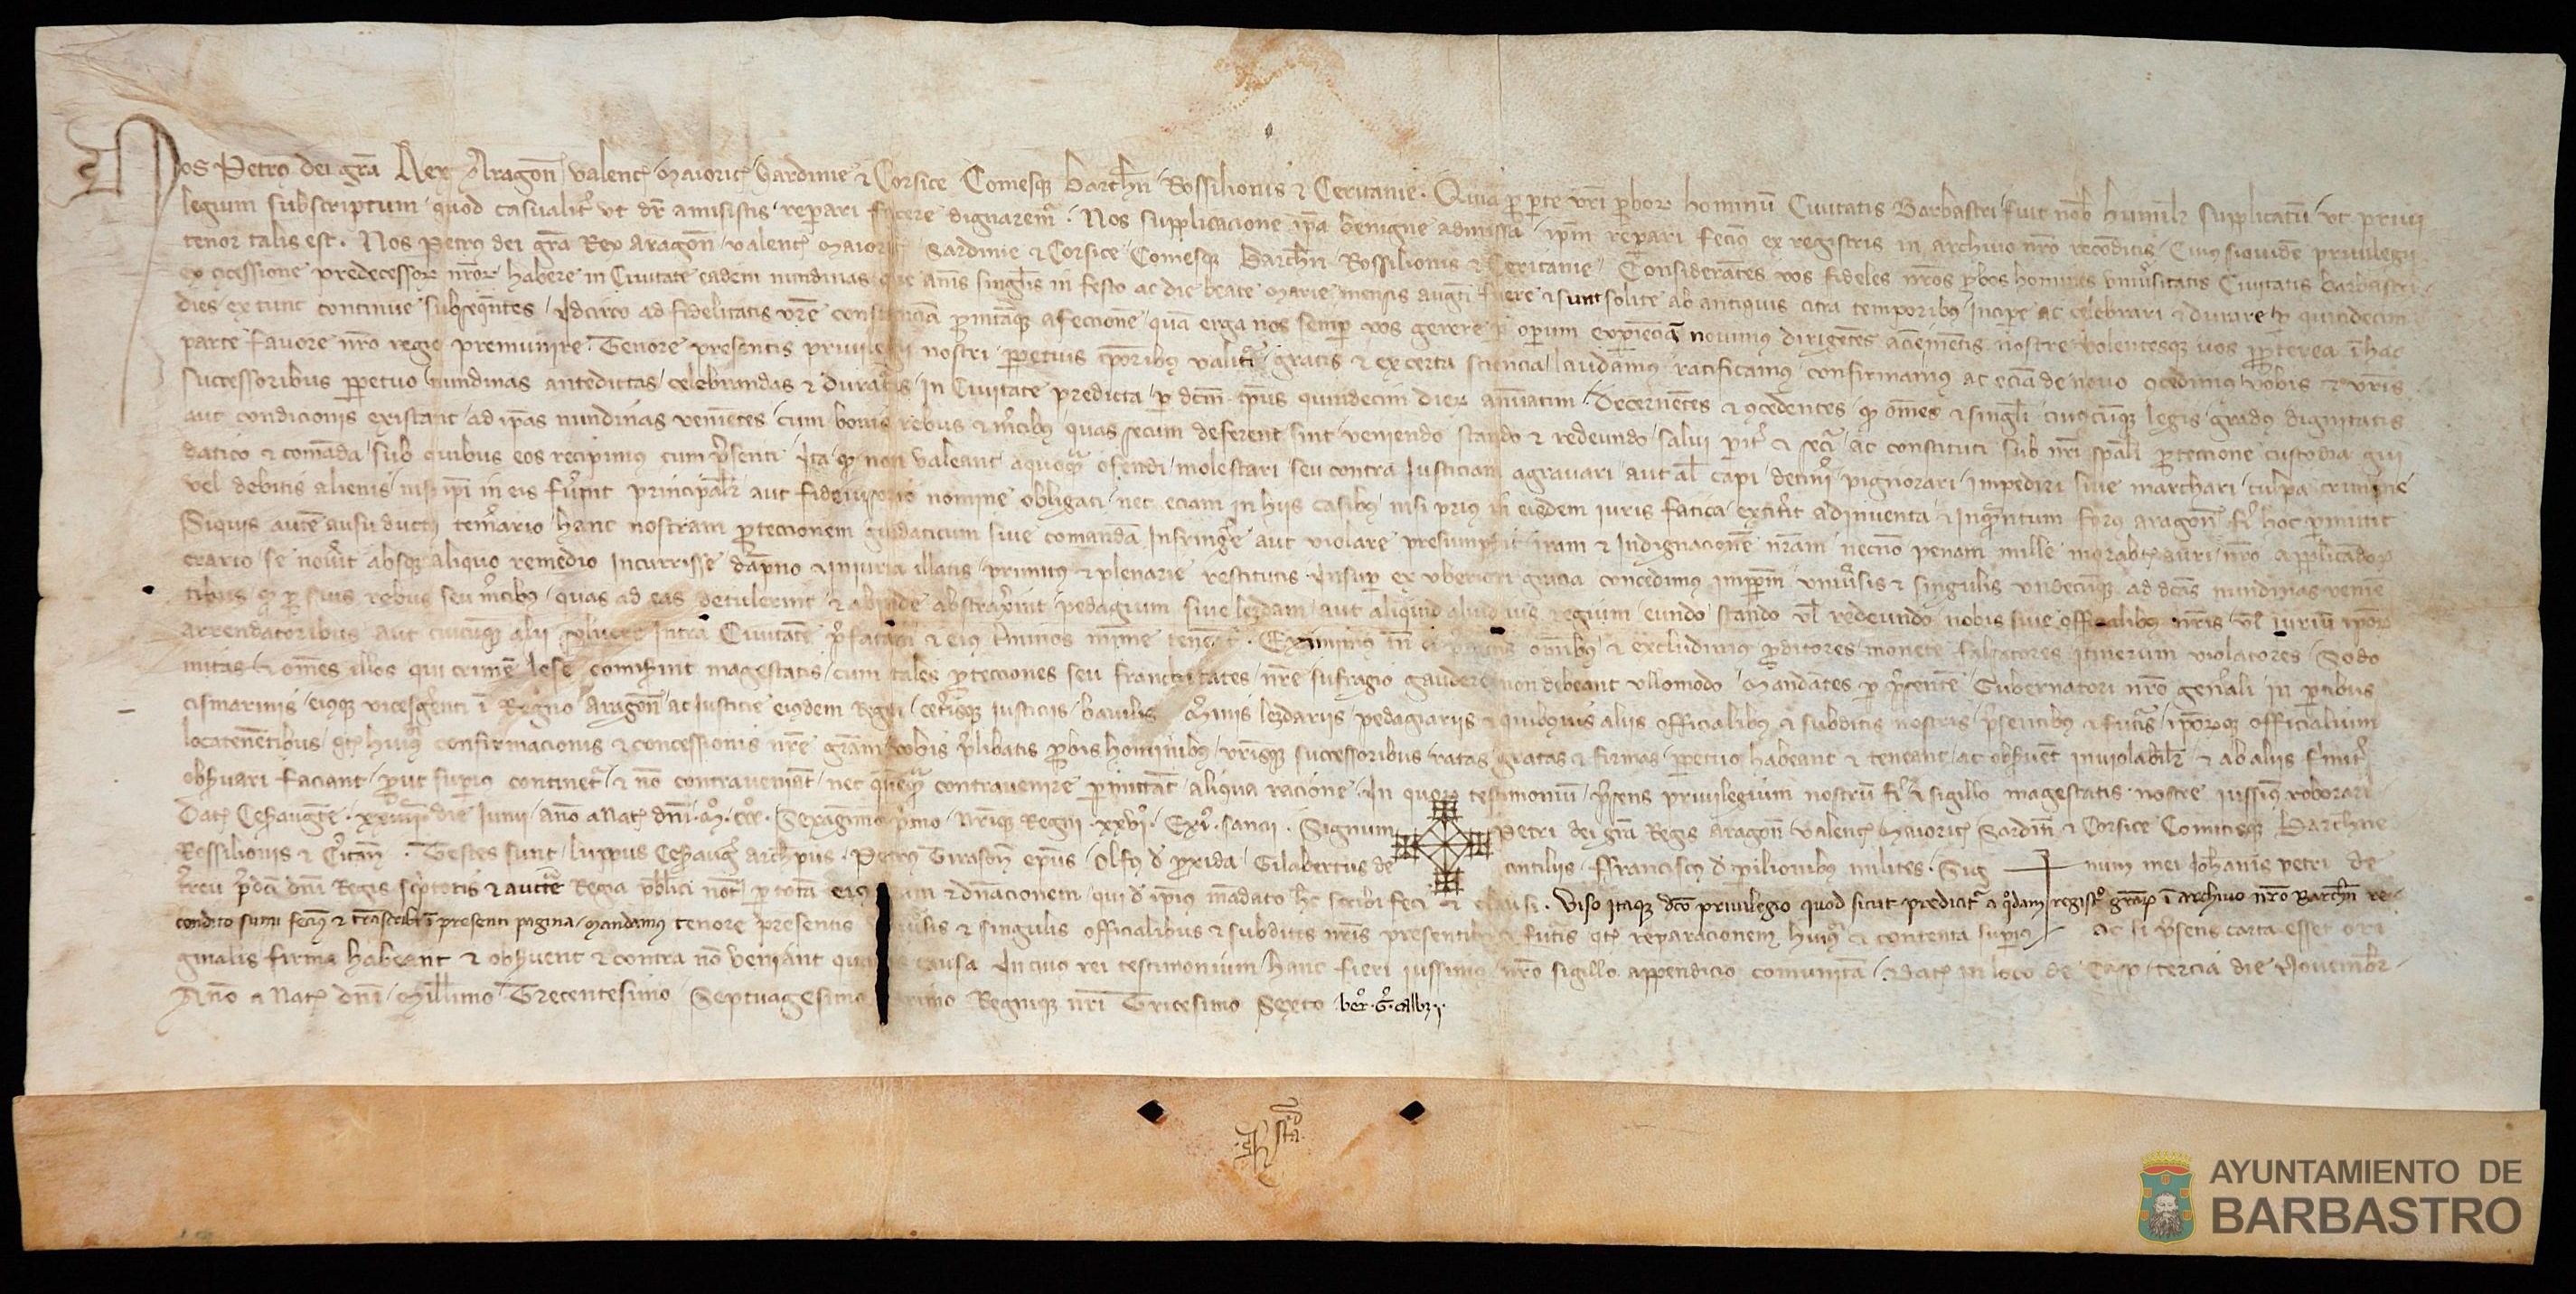 Nos Petrus dei gra Rex Aragon Valenc Maioric Sardinie & Corsice Comesque Barchn Rossilionis & Ceritanie. Quia per parte vri proborum hominum Civitatis Barbastri fuit nob humilr supplicatum ut privi
legium subscriptum quod casualiter ut dr amisistis reparari facere dignaremur. Nos supplicacione ipa benigne admissa ipm reparari fecimus ex registris in archivo nro reconditis Cuius siquidem privilegii
tenor talis est. Nos Petrus dei gra Rex Aragon Valenc Maioric Sardinie & Corsice Comesque Barchn Rossilionis & Ceritanie Considerantes vos fideles nros probos homines universitatis Civitatis Barbastri
ex concessione predecessorum nrorum habere in Civitate eadem nundinas que annis singulis in festo ac die beate Marie mensis augusti fuere & sunt solite ab antiquis citra temporibus incipere ac celebrari & durare per quindecim
dies ex tunc continue subsequentes Idcirco ad fidelitatis vre constanciam afeccionem quam erga nos semper vos gerere per operum experienciam novimus dirigentes aciem mentis nostre volentesque vos propterea in hac
parte favore nro regio premunire Tenore presentis privilegii nostri perpetuis temporibus valituri gratis & ex certa sciencia laudamus ratificamus confirmamus ac eciam de novo concedimus vobis & vris
successoribus perpetuo nundinas antedictas celebrandas & duraturas in Civitate predicta per dictum tempus quindecim dierum annuatim Decernentes & concedentes quod omnes & singuli cuiuscumque legis gradus dignitatis
aut condicionis existant ad ipsas nundinas venientes cum bonis rebus & mercibus quas secum deferent sint veniendo stando & redeundo salvi pariter & securi ac constituti sub nri spali proteccione custodia gui
datico & comanda sub quibus eos recipimus cum presenti Ita quod non valeant a quoquam ofendi molestari seu contra iusticiam agravari aut al capi detineri pignorari impediri sive marchari culpa crimine
vel debitis alienis nisi ipi in eis fuerint principalr aut fideiussorio nomine obligati nec eciam in hiis casibus nisi prius in eisdem iuris fatica extiterit adinventa & inquantum forus aragon fieri hoc permittit
Siquis autem ausu ductus temerario hanc nostram proteccionem guidaticum sive comandam infringere aut violare presumpserit iram & indignacionem nram necnon penam mille morabat auri nro applicandorum
erario se noverit absque aliquo remedio incurrisse dampno & iniuria illatis primitus & plenarie restitutis Insuper ex uberiori gracia concedimus imperpm universis & singulis undecumque ad dictas nundinas venien
tibus quod pro suis rebus seu mercibus quas ad eas detulerint & abinde abstraxerint pedagium sive lezdam aut aliquid aliud ius regium eundo stando vel redeundo nobis sive officialibus nris vel iurium ipor
arrendatoribus aut cuicumque alii solvere intra Civitatem prefatam & eius terminos minime teneantur. Eximimus tn a premissis omnibus & excludimus proditores monete falsatores itinerum violatores Sodo
mitas & omnes illos qui crimen lese comiserint magestatis cum tales protecciones seu franchitates nre sufragio gaudere non debeant ullomodo Mandantes per presentem Gubernatori nro generali in partibus
cismarinis eiusque vicesgerenti in Regno Aragon ac Iusticie eiusdem Regni ceterisque Iusticiis baiulis merinis lezdariis pedagiariis & quibusvis aliis officialibus & subditis nostris presentibus & futuris ipsorumque officialium
locatenentibus quod huiusmodi confirmacionis & concessionis nre gram vobis prelibatis probis hominibus vrisque successoribus ratas gratas & firmas perpetuo habeant & teneant ac observent inviolabilr & ab aliis firmiter
observari faciant prout superius continetur & non contraveniant nec quemquam contravenire permittant aliqua racione In quorum testimonium presens privilegium nostrum fieri & sigillo magestatis nostre iussimus roborari
Dat Cesarauguste xxiiii die Iunii Anno a Nat dni M ccc Sexagesimo primo nrique Regni xxvi. Exa. Sancii. Signum Petri dei gra Regis Aragon Valenc Maioric Sardin & Corsice Comitisque Barchne
Rossilionis & Ceritan. Testes sunt Luppus Cesaraug archiepus. Petrus Tirason epus Olfus de Proxida Gilabertus de Centiliis Ffranciscus de Perilionibus milites. Sig num mei Iohannis Petri de
predci dni Regis scriptoris & auctte Regia publici not per totam & dnacionem qui de ipius mandato hec scribi feci & clausi. Viso itaque dco privilegio quod sicut predicitur a quodam registro graciarum in archivo nro Barchn re
condito sumi fecimus & transcribi in presenti pagina Mandamus tenore presentis & singulis officialibus & subditis nris presentibus & futuris quod reparacionem huiusmodi & contenta superius ac si presens carta esset ori
ginalis firma habeant & observent & contra non veniant causa In cuius rei testimonium hanc fieri iussimus nro sigillo appendicio comunitam. Dat in loco de Casp tercia die Novembr
Anno a Nat dni Millimo Trecentesimo Septuagesimo primo Regnique nri Tricesimo Sexto
AYUNTAMIENTO DE
BARBASTRO